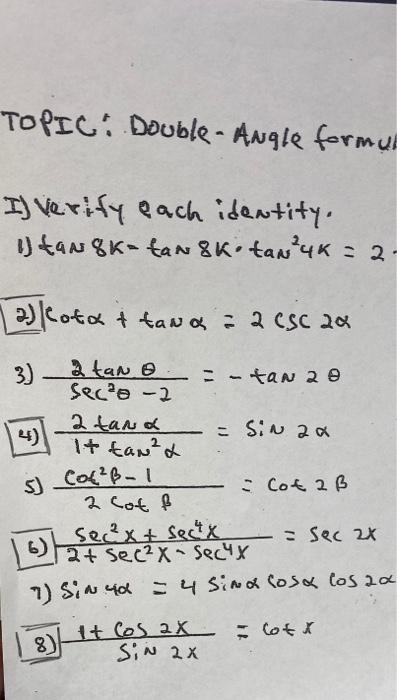 TOPIC: Double-Angle formul
I) Verify each identity.
1) tan 8K - tan 8K · tan²4K = 2
2) Cotα + tan α = 2 csc 2α
3) 2 tan θ / sec²θ - 2 = - tan 2θ
4) 2 tan α / 1 + tan²α = Sin 2α
5) Cot²β - 1 / 2 Cot β = Cot 2β
6) Sec²x + Sec⁴x / 2 + Sec²x - Sec⁴x = Sec 2x
7) Sin 4α = 4 Sinα Cosα Cos 2α
8) 1 + Cos 2x / Sin 2x = Cot x